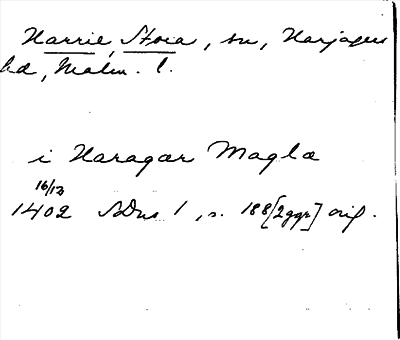 Harrie, Stora, sn, Harjagers
hd, Malm. l.
i Haragær Magla
16/12
1402 SDns 1, s. 188 [2 ggr] orig.